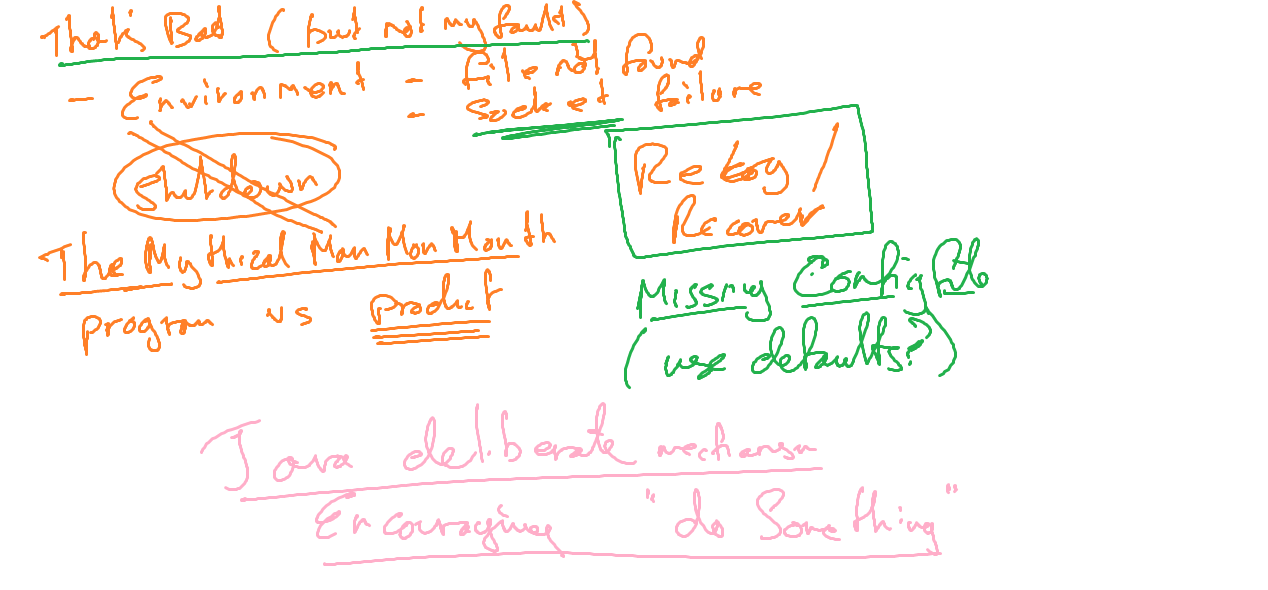 That's Bad (but not my fault)
- Environment - File not found
- Socket failure
Shutdown
Retry /
Recover
The Mythical Man Mon Month
program vs product
Missing Config file
(use defaults?)
Java deliberate mechanism
Encouraging "do Something"